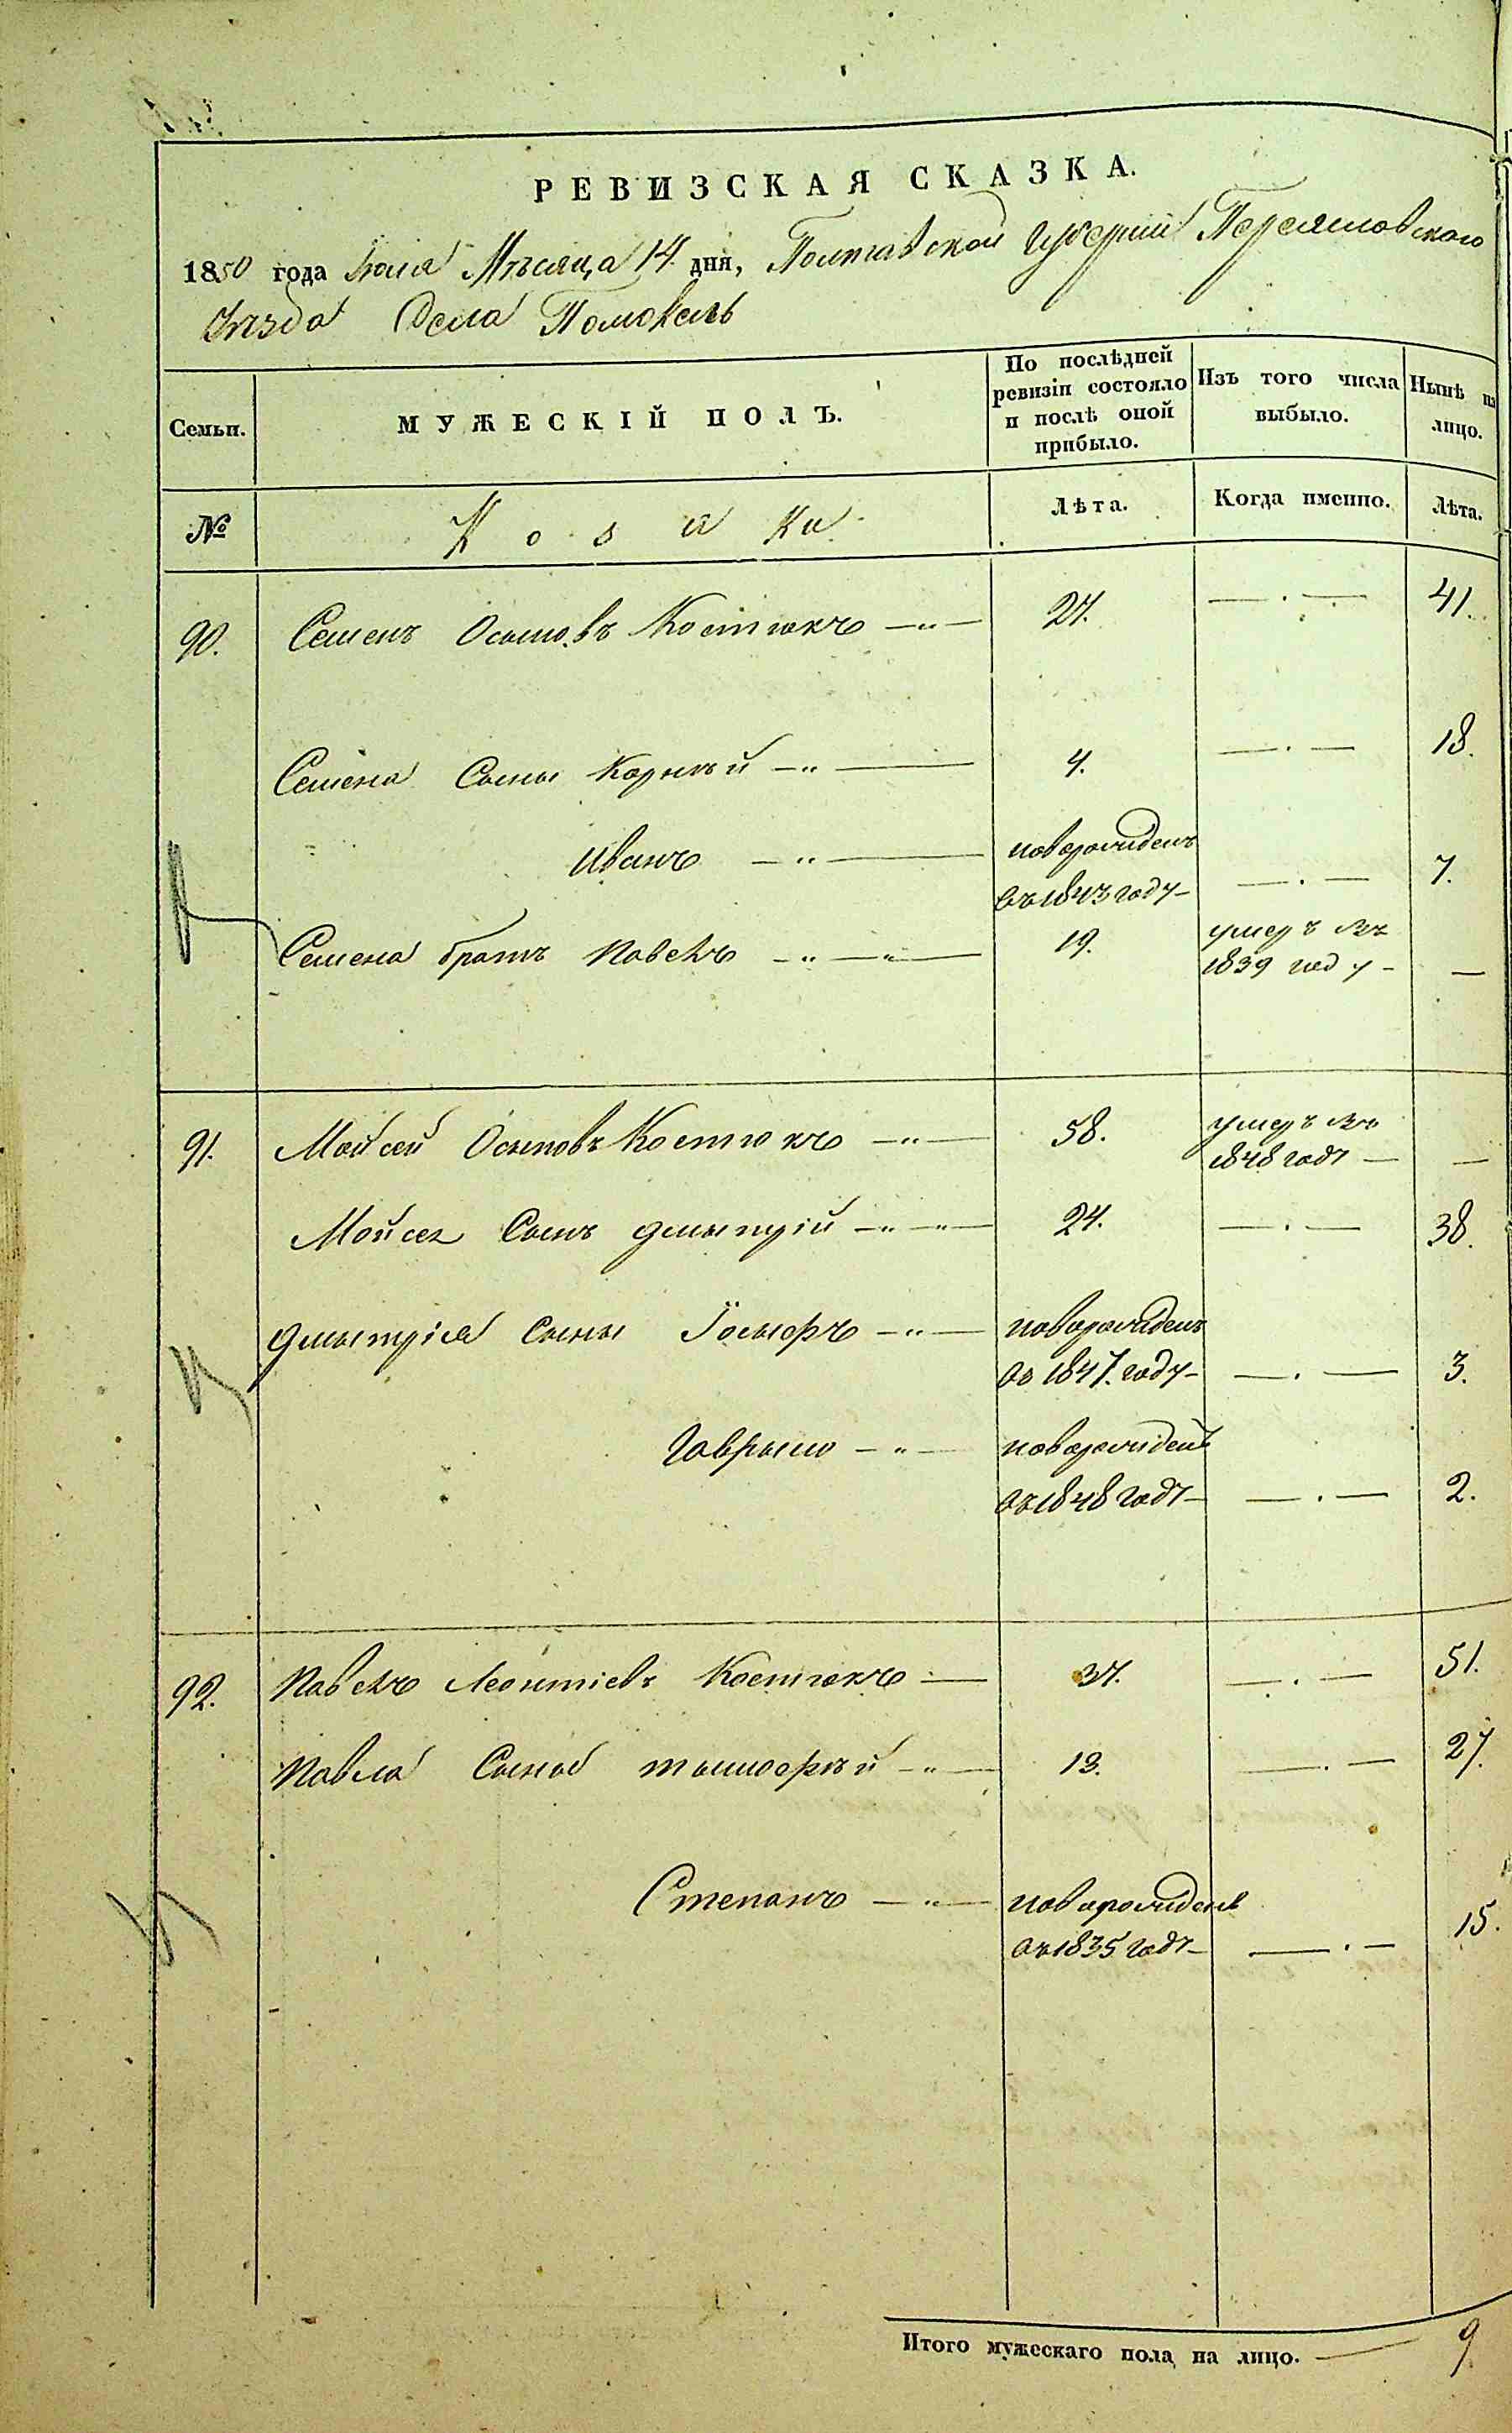 РЕВИЗСКАЯ СКАЗКА.
1850 года Іюля Мѣсяца 14 дня, Полтавской Губерніи Переяславского
Уѣзда Села Помоклъ
Семьи. МУЖЕСКІЙ ПОЛЪ. По послѣдней ревизіи состояло и послѣ оной прибыло. Изъ того числа выбыло. Нынѣ на лицо.
№ Козаки Лѣта. Когда именно. Лѣта.
90. Семенъ Осиповъ Костюкъ 27. 41.
Семена Сыны Корнѣй 4. 18.
Иванъ новорожденъ
въ 1843 году 7.
Семена братъ Павелъ 19. умеръ въ
1839 году
91. Мойсей Осиповъ Костюкъ 58. умеръ въ
1848 году
Мойсея Сынъ Дмытрій 24. 38.
Дмытрія Сыны Іосыфъ новорожденъ
въ 1847. году 3.
Гаврыло новорожденъ
въ 1848 году 2.
92. Павелъ Леонтіевъ Костюкъ 37. 51.
Павла Сыны Тымофѣй 13. 27.
Степанъ новорожденъ
въ 1835 году 15.
Итого мужескаго пола на лицо. 9